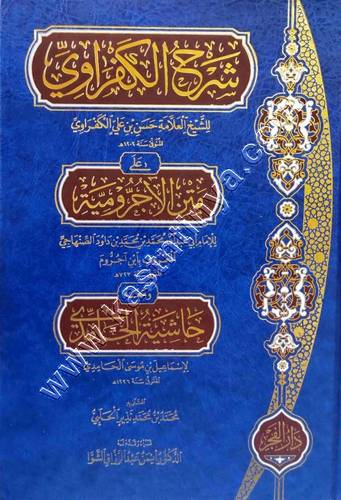 شرح الكفراوي
للشيخ العلامة حسن بن علي الكفراوي
المتوفى سنة ١٢٠٢هـ
على
متن الآجرومية
للإمام أبي عبد الله محمد بن محمد بن داود الصنهاجي
المعروف بابن آجروم
سنة ٧٢٣هـ
حاشية الحامدي
لإسماعيل بن موسى الحامدي
المتوفى سنة ١٣١٦هـ
محمد بن محمد نذير الحلبي
الدكتور أيمن عبد الرزاق الشوا
دار الفجر
www.kasmiyya.com